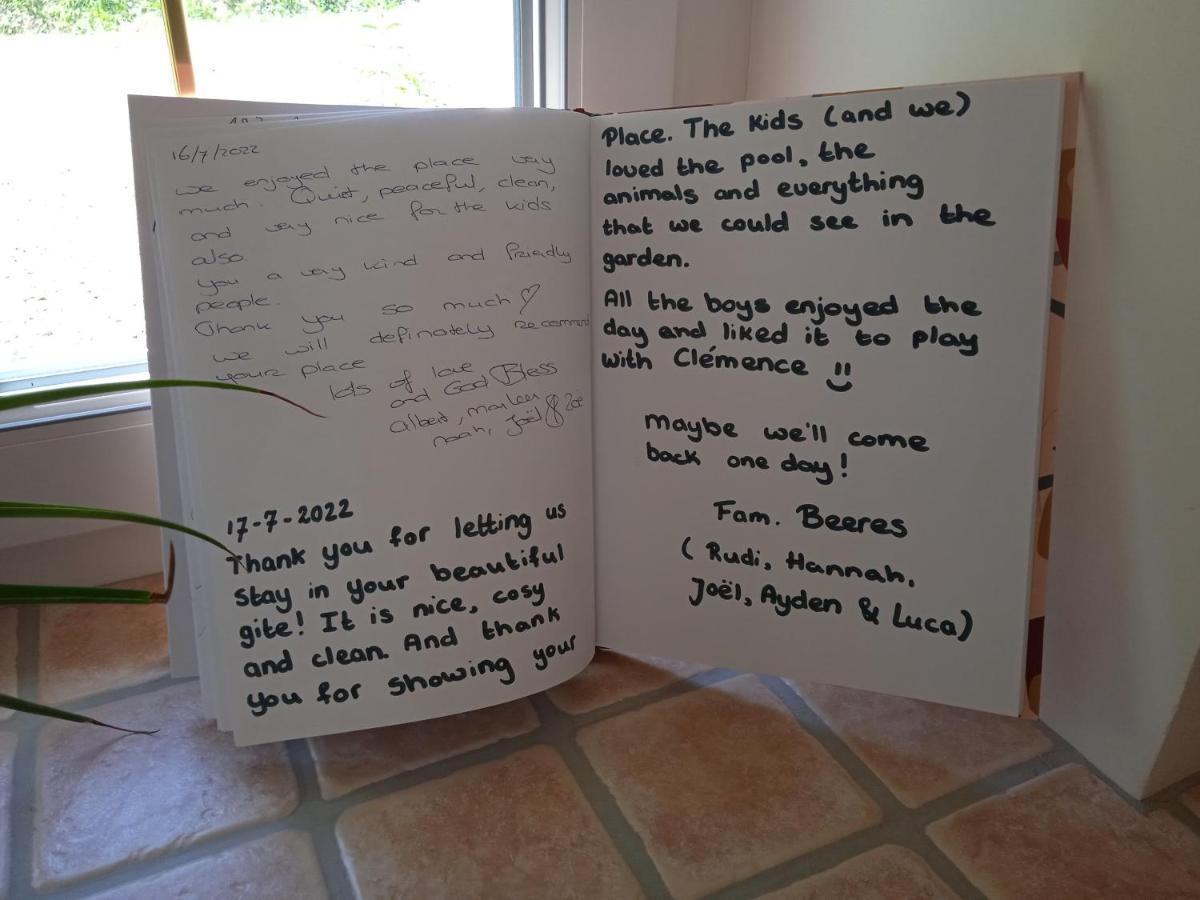 16/7/2022
we enjoyed the place very
much. Quiet, peaceful, clean,
and very nice for the kids
also.
you a very kind and friendly
people.
Thank you so much ♡
we will definately recommend
your place
lots of love
and God Bless
Albert, Marleen
Noah, Joël & Zoë
17-7-2022
Thank you for letting us
stay in your beautiful
gite! It is nice, cosy
and clean. And thank
you for showing your
Place. The kids (and we)
loved the pool, the
animals and everything
that we could see in the
garden.
All the boys enjoyed the
day and liked it to play
with Clémence
Maybe we'll come
back one day!
Fam. Beeres
(Rudi, Hannah,
Joël, Ayden & Luca)